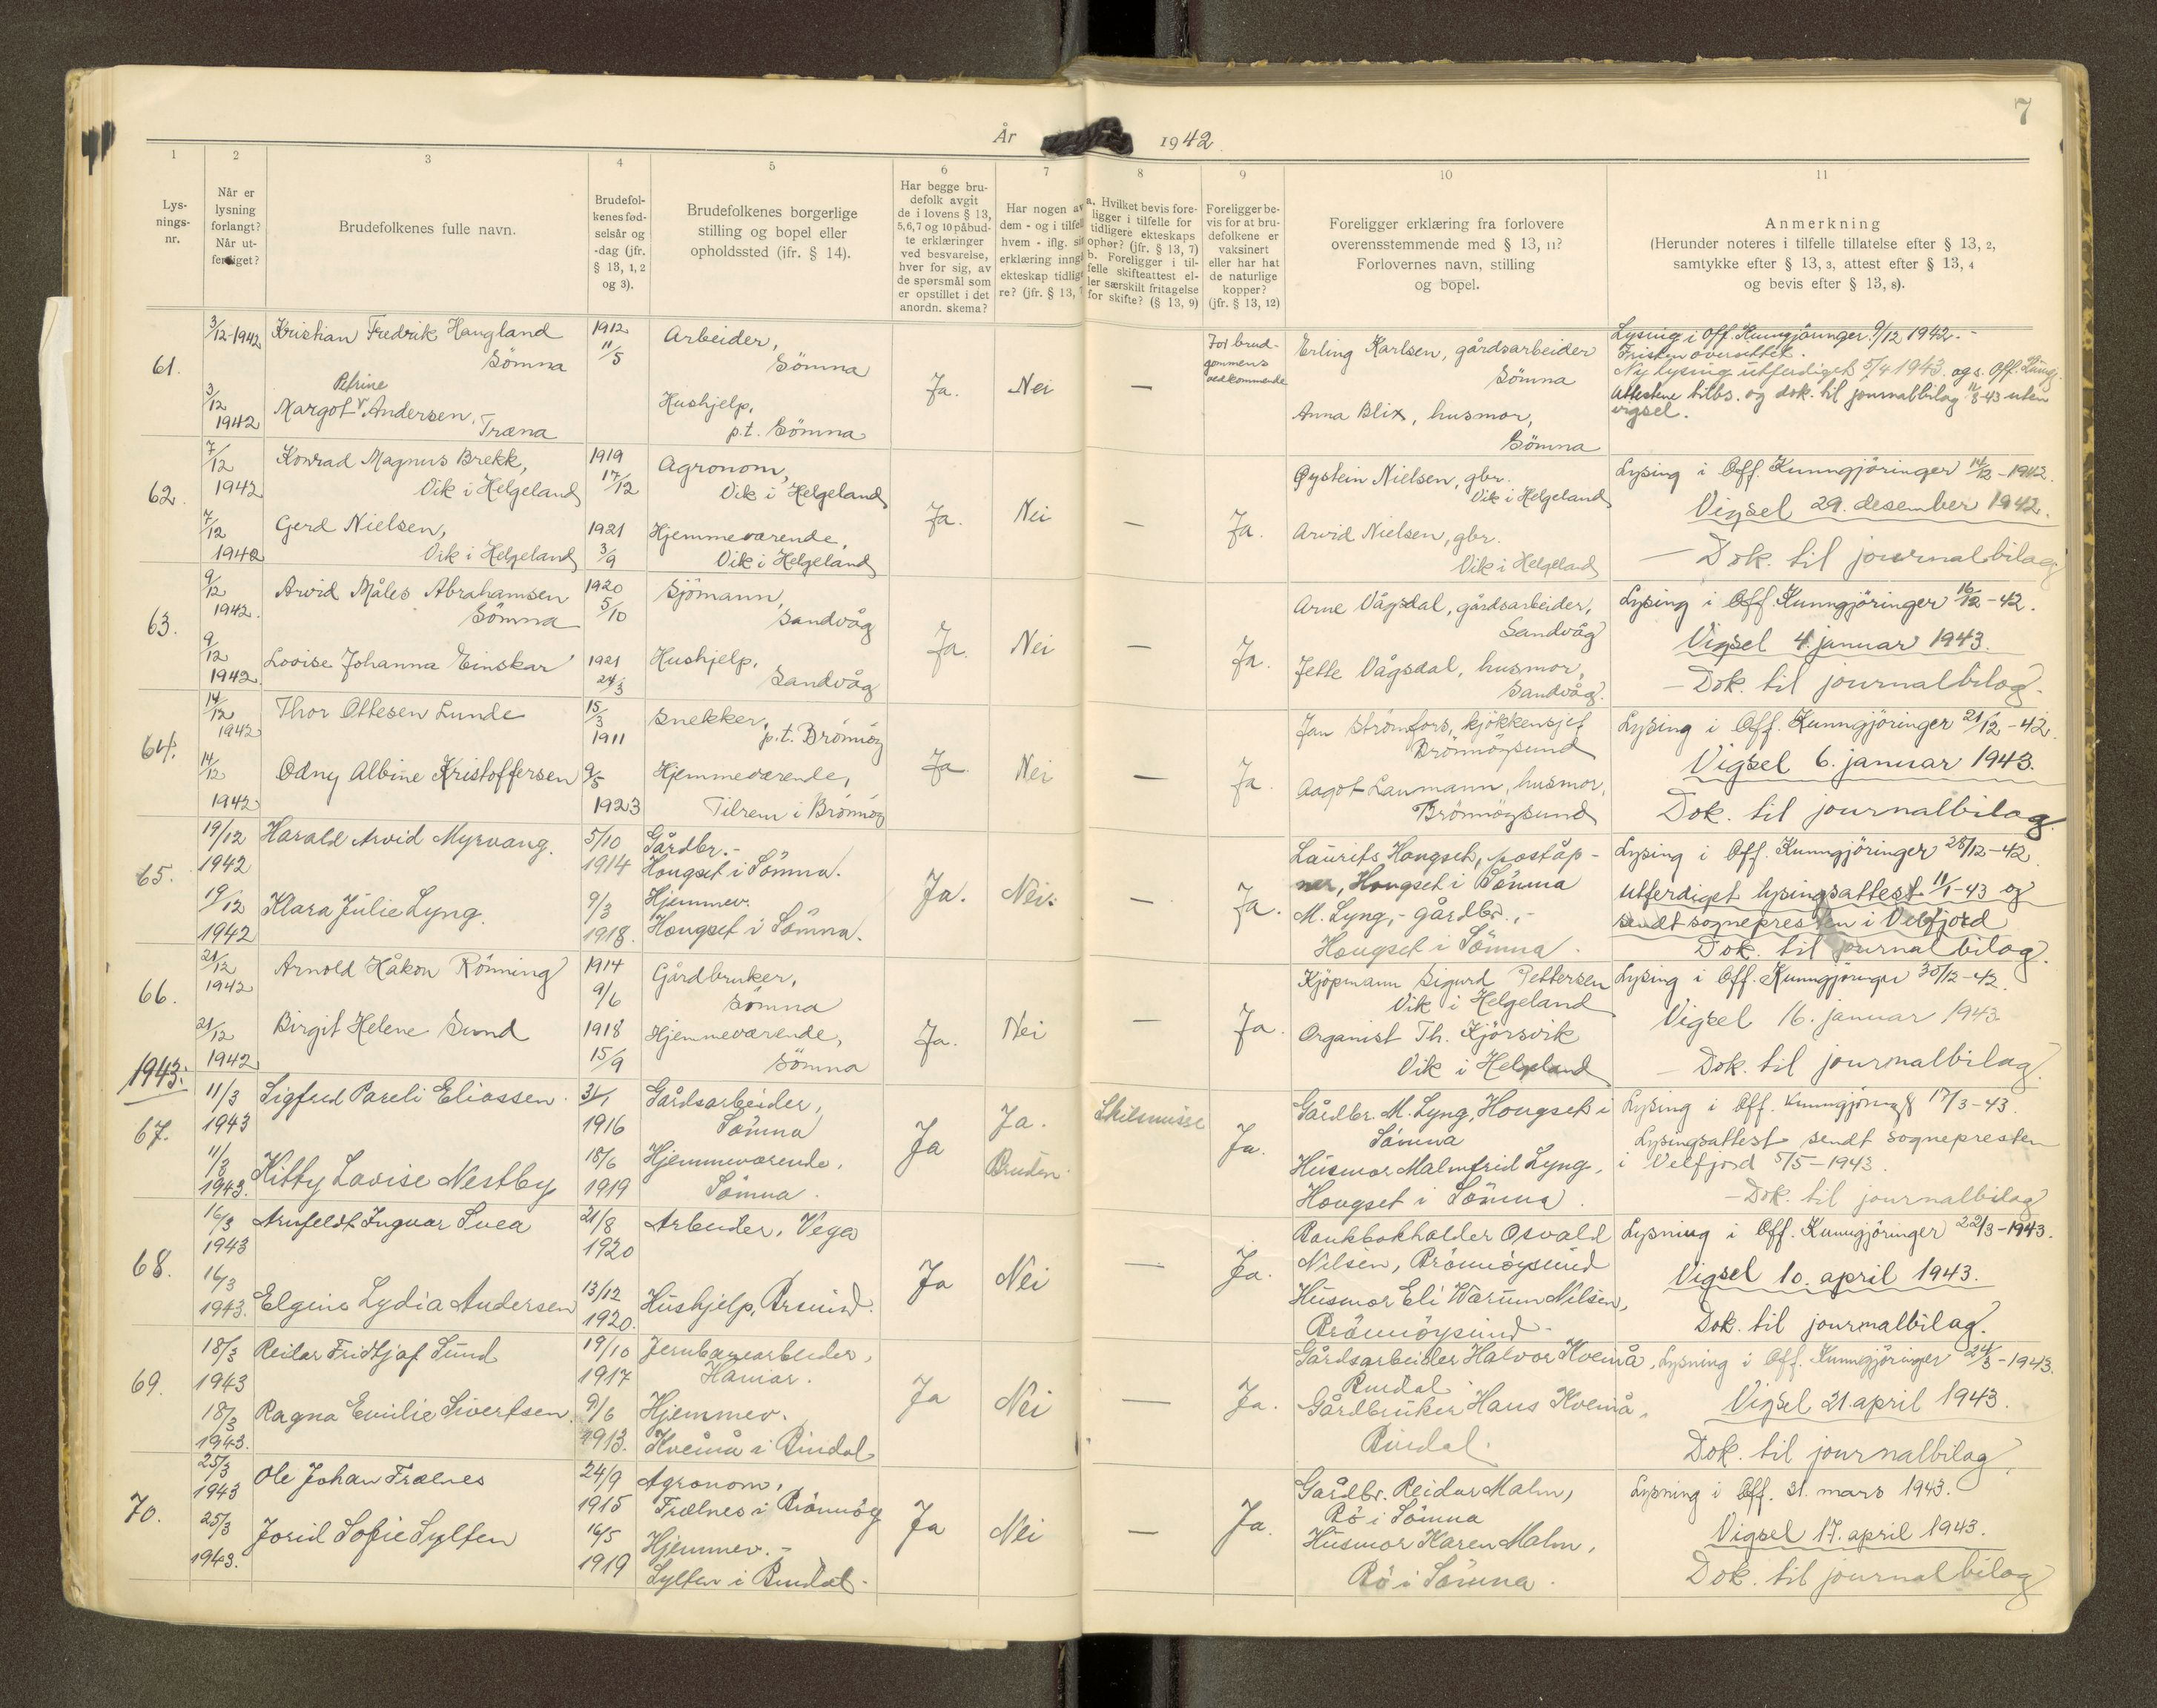 7
År 1942
1 2 3 4 5 6 7 8 9 10 11
Lys-
nings-
nr.
Når er
lysning
forlangt?
Når ut-
ferdiget?
Brudefolkenes fulle navn.
Brudefol-
kenes fød-
selsår og
-dag (jfr.
§ 13, 1, 2
og 3).
Brudefolkenes borgerlige
stilling og bopel eller
opholdssted (jfr. § 14).
Har begge bru-
defolk avgit
de i lovens § 13,
5,6,7 og 10 påbud-
te erklæringer
ved besvarelse,
hver for sig, av
de spørsmål som
er opstillet i det
anordn. skema?
Har nogen av
dem - og i tilfell
hvem - iflg. sin
erklæring inng
ekteskap tidlig
re? (jfr. § 13, 7
a. Hvilket bevis fore-
ligger i tilfelle for
tidligere ekteskaps
ophør? (jfr. § 13, 7)
b. Foreligger i til-
felle skifteattest el-
ler særskilt fritagelse
for skifte? (§ 13, 9)
Foreligger be-
vis for at bru-
defolkene er
vaksinert
eller har hat
de naturlige
kopper?
(jfr. § 13, 12)
Foreligger erklæring fra forlovere
overensstemmende med § 13, 11?
Forlovernes navn, stilling
og bopel.
Anmerkning
(Herunder noteres i tilfelle tillatelse efter § 13, 2,
samtykke efter § 13, 3, attest efter § 13, 4
og bevis efter § 13, 8).
61.
3/12-1942
Kristian Fredrik Haugland
Sömna
1912
11/5
Arbeider,
Sömna
3/12
1942
Petrine
Margot Andersen,
Træna
Hushjelp,
p.t. Sömna
Ja.
Nei
—
For brud-
gommens
vedkommende
Erling Karlsen, gårdsarbeider
Sömna
Anna Blix, husmor,
Sömna
Lysing i Off. Kunngjöringer 9/12 1942. -
Fristen oversittet.
Ny lysing utferdiget 5/4 1943. ogs. Off. Kung.
Attestene tilbs. og dok. til journalbilag 11/8-43 uten
vigsel.
62.
7/12
1942
Konrad Magnus Brekk,
Vik i Helgeland
1919
17/12
Agronom,
Vik i Helgeland
7/12
1942
Gerd Nielsen,
Vik i Helgeland
1921
3/9
Hjemmeværende,
Vik i Helgeland
Ja.
Nei
—
Ja.
Øystein Nielsen, gbr.
Vik i Helgeland
Arvid Nielsen, gbr.
Vik i Helgeland
Lysing i Off. Kunngjöringer 14/12-1942.
Vigsel 29. desember 1942.
— Dok. til journalbilag
63.
9/12
1942.
Arvid Måles Abrahamsen
Sömna
1920
5/10
Sjömann,
Sandvåg
9/12
1942.
Lovise Johanna Einskar
1921
24/3
Hushjelp,
Sandvåg
Ja.
Nei
—
Ja.
Arne Vågsdal, gårdsarbeider,
Sandvåg
Jette Vågsdal, husmor,
Sandvåg.
Lysing i Off. Kunngjöringer 16/12-42.
Vigsel 4. januar 1943.
— Dok. til journalbilag.
64.
14/12
1942
Thor Ottesen Lunde
15/3
1911
Snekker,
p.t. Brönnöy
14/12
1942
Odny Albine Kristoffersen
9/5
1923
Hjemmeværende,
Tilrem i Brönnöy
Ja
Nei
—
Ja.
Jan Strömfors, kjökkensjef
Brönnöysund
Aagot Laumann, husmor,
Brönnöysund
Lysing i Off. Kunngjöringer 21/12-42.
Vigsel 6. januar 1943.
Dok. til journalbilag.
65.
19/12
1942
Harald Arvid Myrvang.
5/10
1914
Gårdbr.-
Hongset i Sömna.
19/12
1942
Klara Julie Lyng.
9/3
1918.
Hjemmev.
Hongset i Sömna.
Ja.
Nei.
—
Ja.
Laurits Hongset, poståp-
ner, Hongset i Sömna
M. Lyng,- gårdbr.,-
Hongset i Sömna.
Lysing i Off. Kunngjöringer 28/12-42
utferdiget lysingsattest 11/1-43 og
sendt sognepresten i Velfjord
Dok. til journalbilag.
66.
21/12
1942
Arnold Håkon Rönning
1914
9/6
Gårdbruker,
Sömna
21/12
1942
Birgit Helene Sund
1918
15/9
Hjemmeværende,
Sömna
Ja.
Nei
—
Ja.
Kjöpmann Sigurd Pettersen
Vik i Helgeland
Organist Th. Kjörsvik
Vik i Helgeland
Lysing i Off. Kunngjöringer 30/12-42.
Vigsel 16. januar 1943
— Dok. til journalbilag.
1943:
67.
11/3
1943
Sigfred Pareli Eliassen.
3/1
1916
Gårdsarbeider,
Sömna
11/3
1943.
Kitty Lovise Nestby
18/6
1919
Hjemmeværende,
Sömna.
Ja
Ja.
Bruden.
Skilsmisse
Ja.
Gårdbr. M. Lyng, Hongset i
Sömna
Husmor Malmfrid Lyng,
Hongset i Sömna.
Lysing i Off. Kunngjöring 17/3-43.
Lysingsattest sendt sognepresten
i Velfjord 5/5-1943.
— Dok. til journalbilag
68.
16/3
1943
Arnfeldt Ingvar Svea
21/8
1920
Arbeider, Vega
16/3
1943.
Elgine Lydia Andersen
13/12
1920.
Hushjelp, Brsund.
Ja
Nei
—
Ja.
Bankbokholder Osvald
Nilsen, Brönnöysund
Husmor Eli Warum Nilsen,
Brönnöysund.
Lysning i Off. Kunngjöringer 22/3-1943.
Vigsel 10. april 1943.
Dok. til journalbilag.
69.
18/3
1943
Reidar Fridtjof Sund
19/10
1917
Jernbanearbeider,
Hamar.
18/3
1943.
Ragna Emilie Sivertsen.
9/6
1913.
Hjemmev.
Kveinå i Bindal
Ja
Nei
—
Ja.
Gårdsarbeider Halvor Kveinå,
Bindal
Gårdbruker Hans Kveinå,
Bindal.
Lysning i Off. Kunngjöringer 24/3-1943.
Vigsel 21. april 1943.
Dok. til journalbilag.
70.
25/3
1943
Ole Johan Frælnes
24/9
1915
Agronom,
Trælnes i Brönnöy
25/3
1943.
Jorid Sofie Sylten
16/5
1919
Hjemmev.-
Sylten i Bindal.
Ja
Nei
—
Ja.
Gårdbr. Reidar Malm,
Rö i Sömna
Husmor Karen Malm,
Rö i Sömna.
Lysning i Off. 31. mars 1943.
Vigsel 17. april 1943.
Dok. til journalbilag